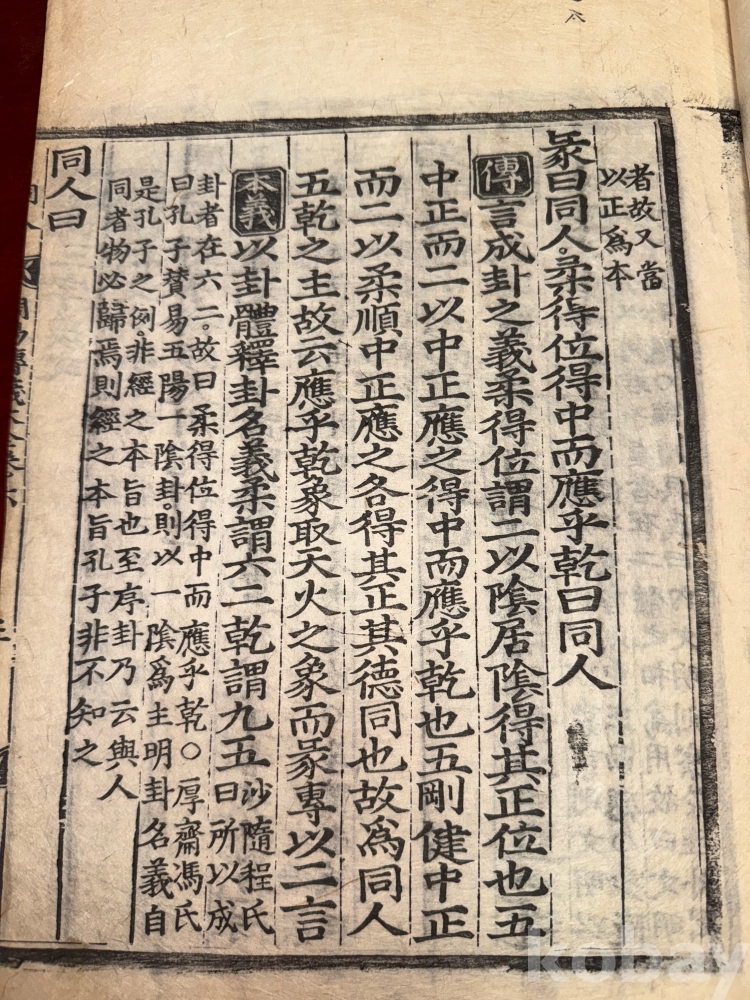 者故又當
以正爲本
彖曰同人。柔得位得中而應乎乾曰同人
傳言成卦之義柔得位謂二以陰居陰得其正位也五
中正而二以中正應之得中而應乎乾也五剛健中正
而二以柔順中正應之各得其正其德同也故爲同人
五乾之主故云應乎乾象取天火之象而彖專以二言
本義以卦體釋卦名義柔謂六二乾謂九五沙隨程氏
曰所以成
卦者在六二。故曰柔得位得中而應乎乾。○厚齋馮氏
曰孔子贊易五陽一陰卦。則以一陰爲主明卦名義自
是孔子之例。非經之本旨也至序卦乃云與人
同者物必歸焉則經之本旨孔子非不知之
同人曰
周易傳義大全卷六
kobay